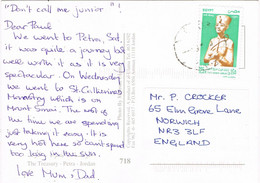 "Don't call me junior"
Dear Paul
We went to Petra, Sat,
it was quite a journey but
well worth it as it is very
spectacular. On Wednesday
we went to St. Catherines
Monastery which is on
Mount Sinai. The rest of
the time we are spending
just taking it easy. It is
very hot here so cant spend
too long in the sun.
Love Mum & Dad.
718
The Treasury - Petra - Jordan
Mr. P. CROCKER
65 Elm Grove Lane
NORWICH
NR3 3LF
ENGLAND